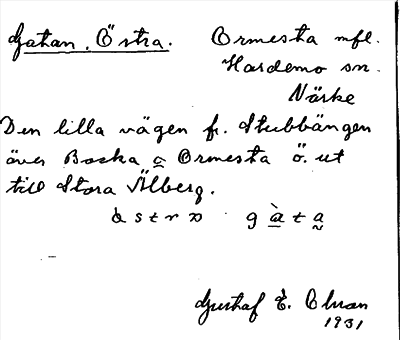 Gatan, Östra. Ormesta mfl.
Hardemo sn.
Närke
Den lilla vägen fr. Stubbängen
över Backa o Ormesta ö. ut
till Stora Älberg.
Gustaf E.
1931